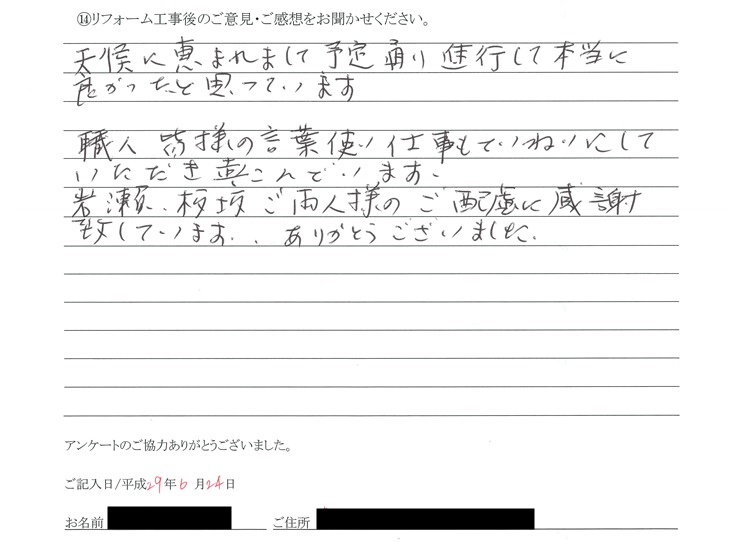 ⑭リフォーム工事後のご意見・ご感想をお聞かせください。
天候に恵まれまして予定通り進行して本当に
良かったと思っています
職人皆様の言葉使い仕事もていねいにして
いただき喜こんでいます、
岩瀬、板坂ご両人様のご配慮に感謝
致しています、ありがとうございました。
アンケートのご協力ありがとうございました。
ご記入日/平成29年6月24日
お名前 ご住所